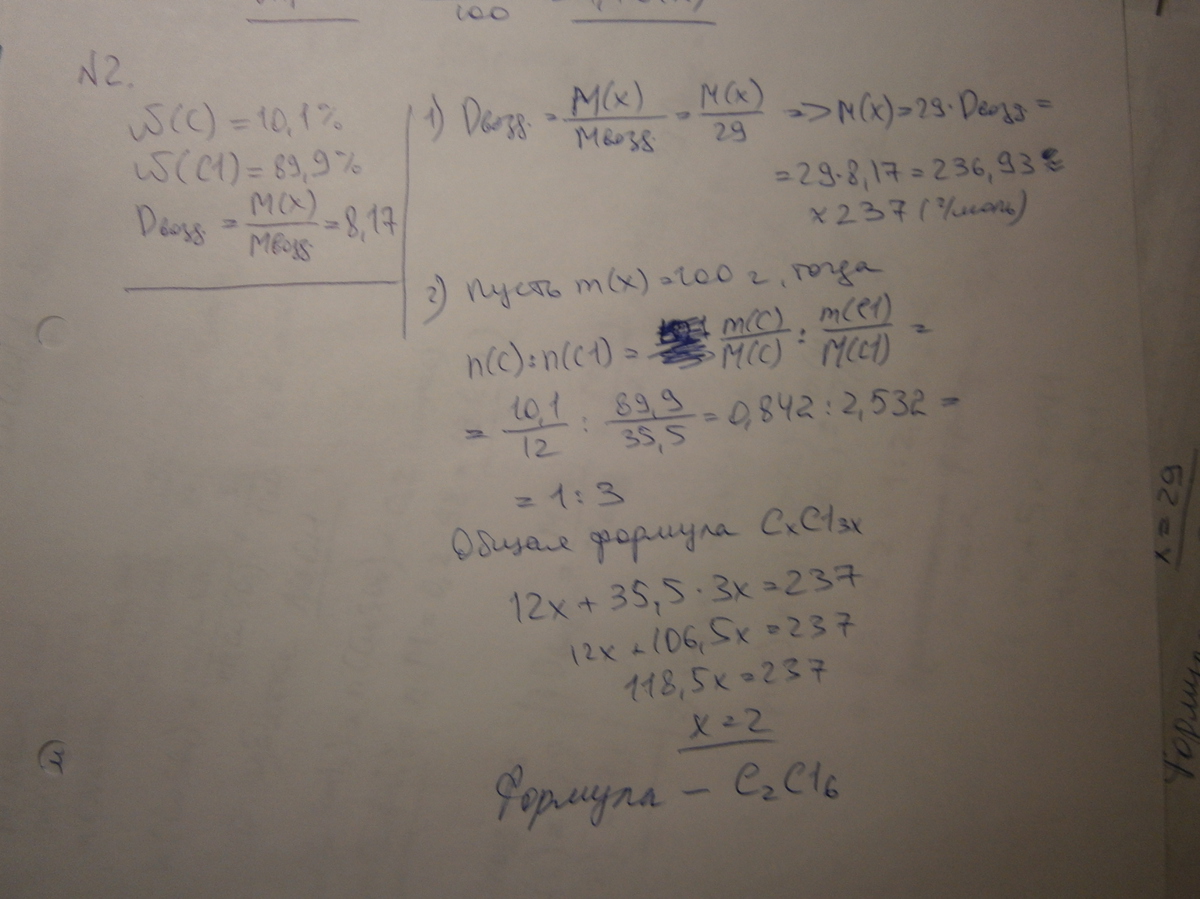 100
N2.
W(C) = 10,1%
W(Cl) = 89,9%
Dвозд. = M(x)/Mвозд. = 8,17
1) Dвозд. = M(x)/Mвозд. = M(x)/29 => M(x) = 29·Dвозд. =
= 29·8,17 = 236,93 ≈
≈ 237 (г/моль)
2) Пусть m(x) = 100 г, тогда
n(C):n(Cl) = m(C)/M(C) : m(Cl)/M(Cl) =
= 10,1/12 : 89,9/35,5 = 0,842 : 2,532 =
= 1:3
Общая формула CxCl3x
12x + 35,5·3x = 237
12x + 106,5x = 237
118,5x = 237
x = 2
Формула – C2Cl6
x = 29